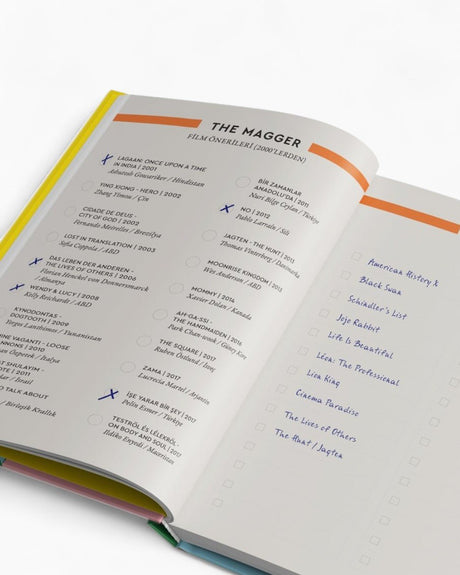 THE MAGGER
FİLM ÖNERİLERİ (2000'LERDEN)
LAGAAN: ONCE UPON A TIME
IN INDIA | 2001
Ashutosh Gowariker / Hindistan
YING XIONG - HERO | 2002
Zhang Yimou / Çin
CIDADE DE DEUS -
CITY OF GOD | 2002
Fernando Meirelles / Brezilya
LOST IN TRANSLATION | 2003
Sofia Coppola / ABD
DAS LEBEN DER ANDEREN -
THE LIVES OF OTHERS | 2006
Florian Henckel von Donnersmarck
/ Almanya
WENDY & LUCY | 2008
Kelly Reichardt / ABD
KYNODONTAS -
DOGTOOTH | 2009
Yorgos Lanthimos / Yunanistan
VAGANTI - LOOSE
| 2010
Ozpetek / İtalya
SHULAYIM -
| 2011
/ İsrail
TALK ABOUT
/ Birleşik Krallık
BİR ZAMANLAR
ANADOLU'DA | 2011
Nuri Bilge Ceylan / Türkiye
NO | 2012
Pablo Larraín / Şili
JAGTEN - THE HUNT | 2011
Thomas Vinterberg / Danimarka
MOONRISE KINGDOM | 2013
Wes Anderson / ABD
MOMMY | 2014
Xavier Dolan / Kanada
AH-GA-SSI -
THE HANDMAIDEN | 2016
Park Chan-wook / Güney Kore
THE SQUARE | 2017
Ruben Östlund / İsveç
ZAMA | 2017
Lucrecia Martel / Arjantin
İŞE YARAR BİR ŞEY | 2017
Pelin Esmer / Türkiye
TESTRŐL ÉS LÉLEKRŐL -
ON BODY AND SOUL | 2017
Ildiko Enyedi / Macaristan
American History X
Black Swan
Schindler's List
Jojo Rabbit
Life Is Beautiful
Léon: The Professional
Lion King
Cinema Paradise
The Lives of Others
The Hunt / Jagten